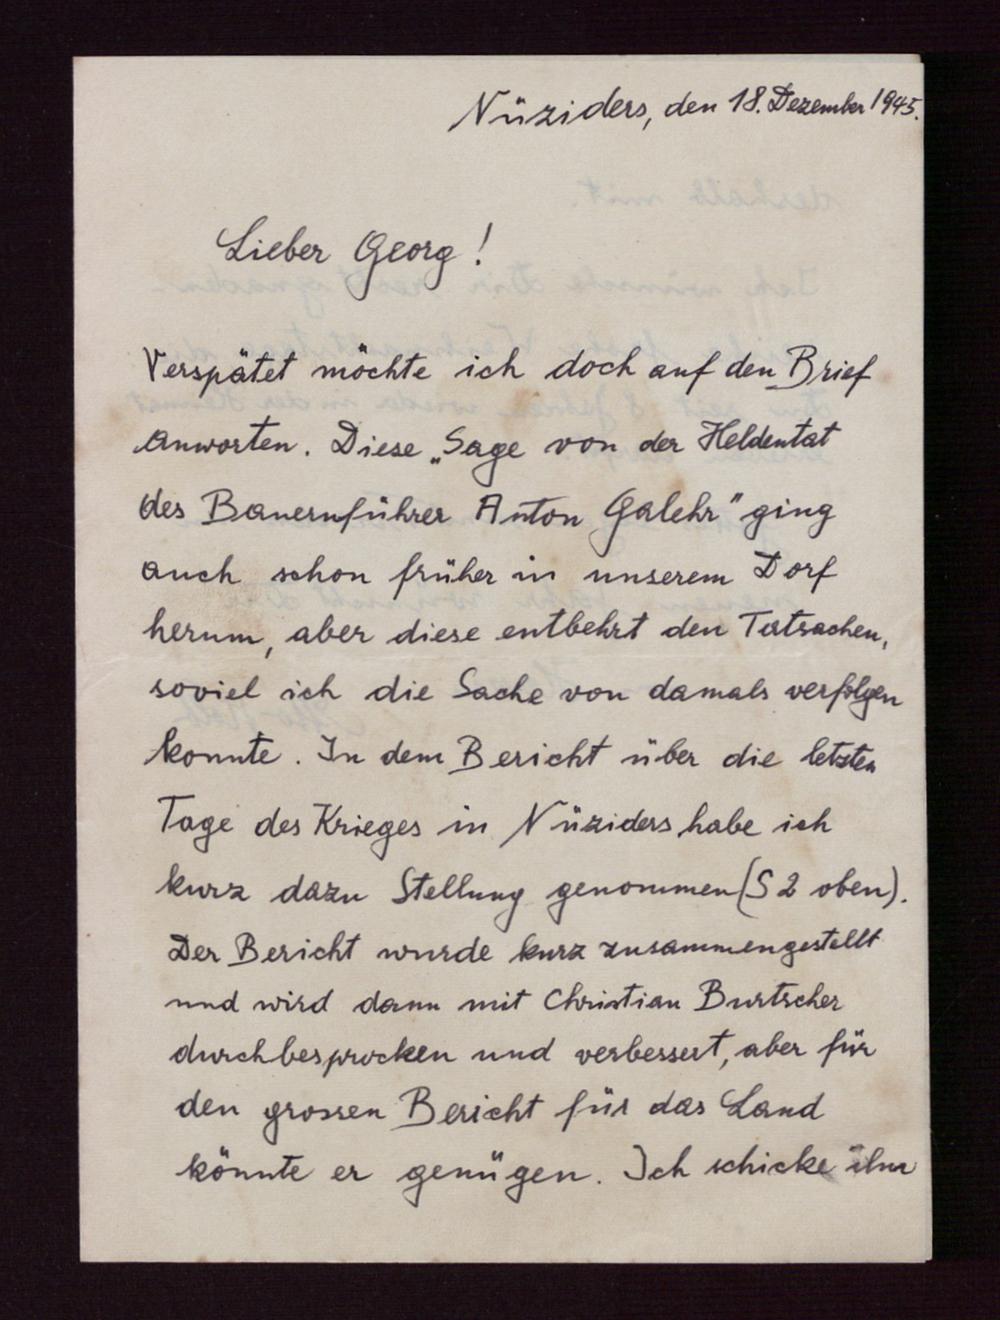 Nüziders, den 18. Dezember 1945.
Lieber Georg!
Verspätet möchte ich doch auf den Brief
anworten. Diese „Sage von der Heldentat
des Bauernführer Anton Galehr" ging
auch schon früher in unserem Dorf
herum, aber diese entbehrt den Tatsachen,
soviel ich die Sache von damals verfolgen
konnte. In dem Bericht über die letzten
Tage des Krieges in Nüziders habe ich
kurz dazu Stellung genommen (S 2 oben).
Der Bericht wurde kurz zusammengestellt
und wird dann mit Christian Burtscher
durchbesprocken und verbessert, aber für
den grossen Bericht für das Land
könnte er genügen. Ich schicke ihn